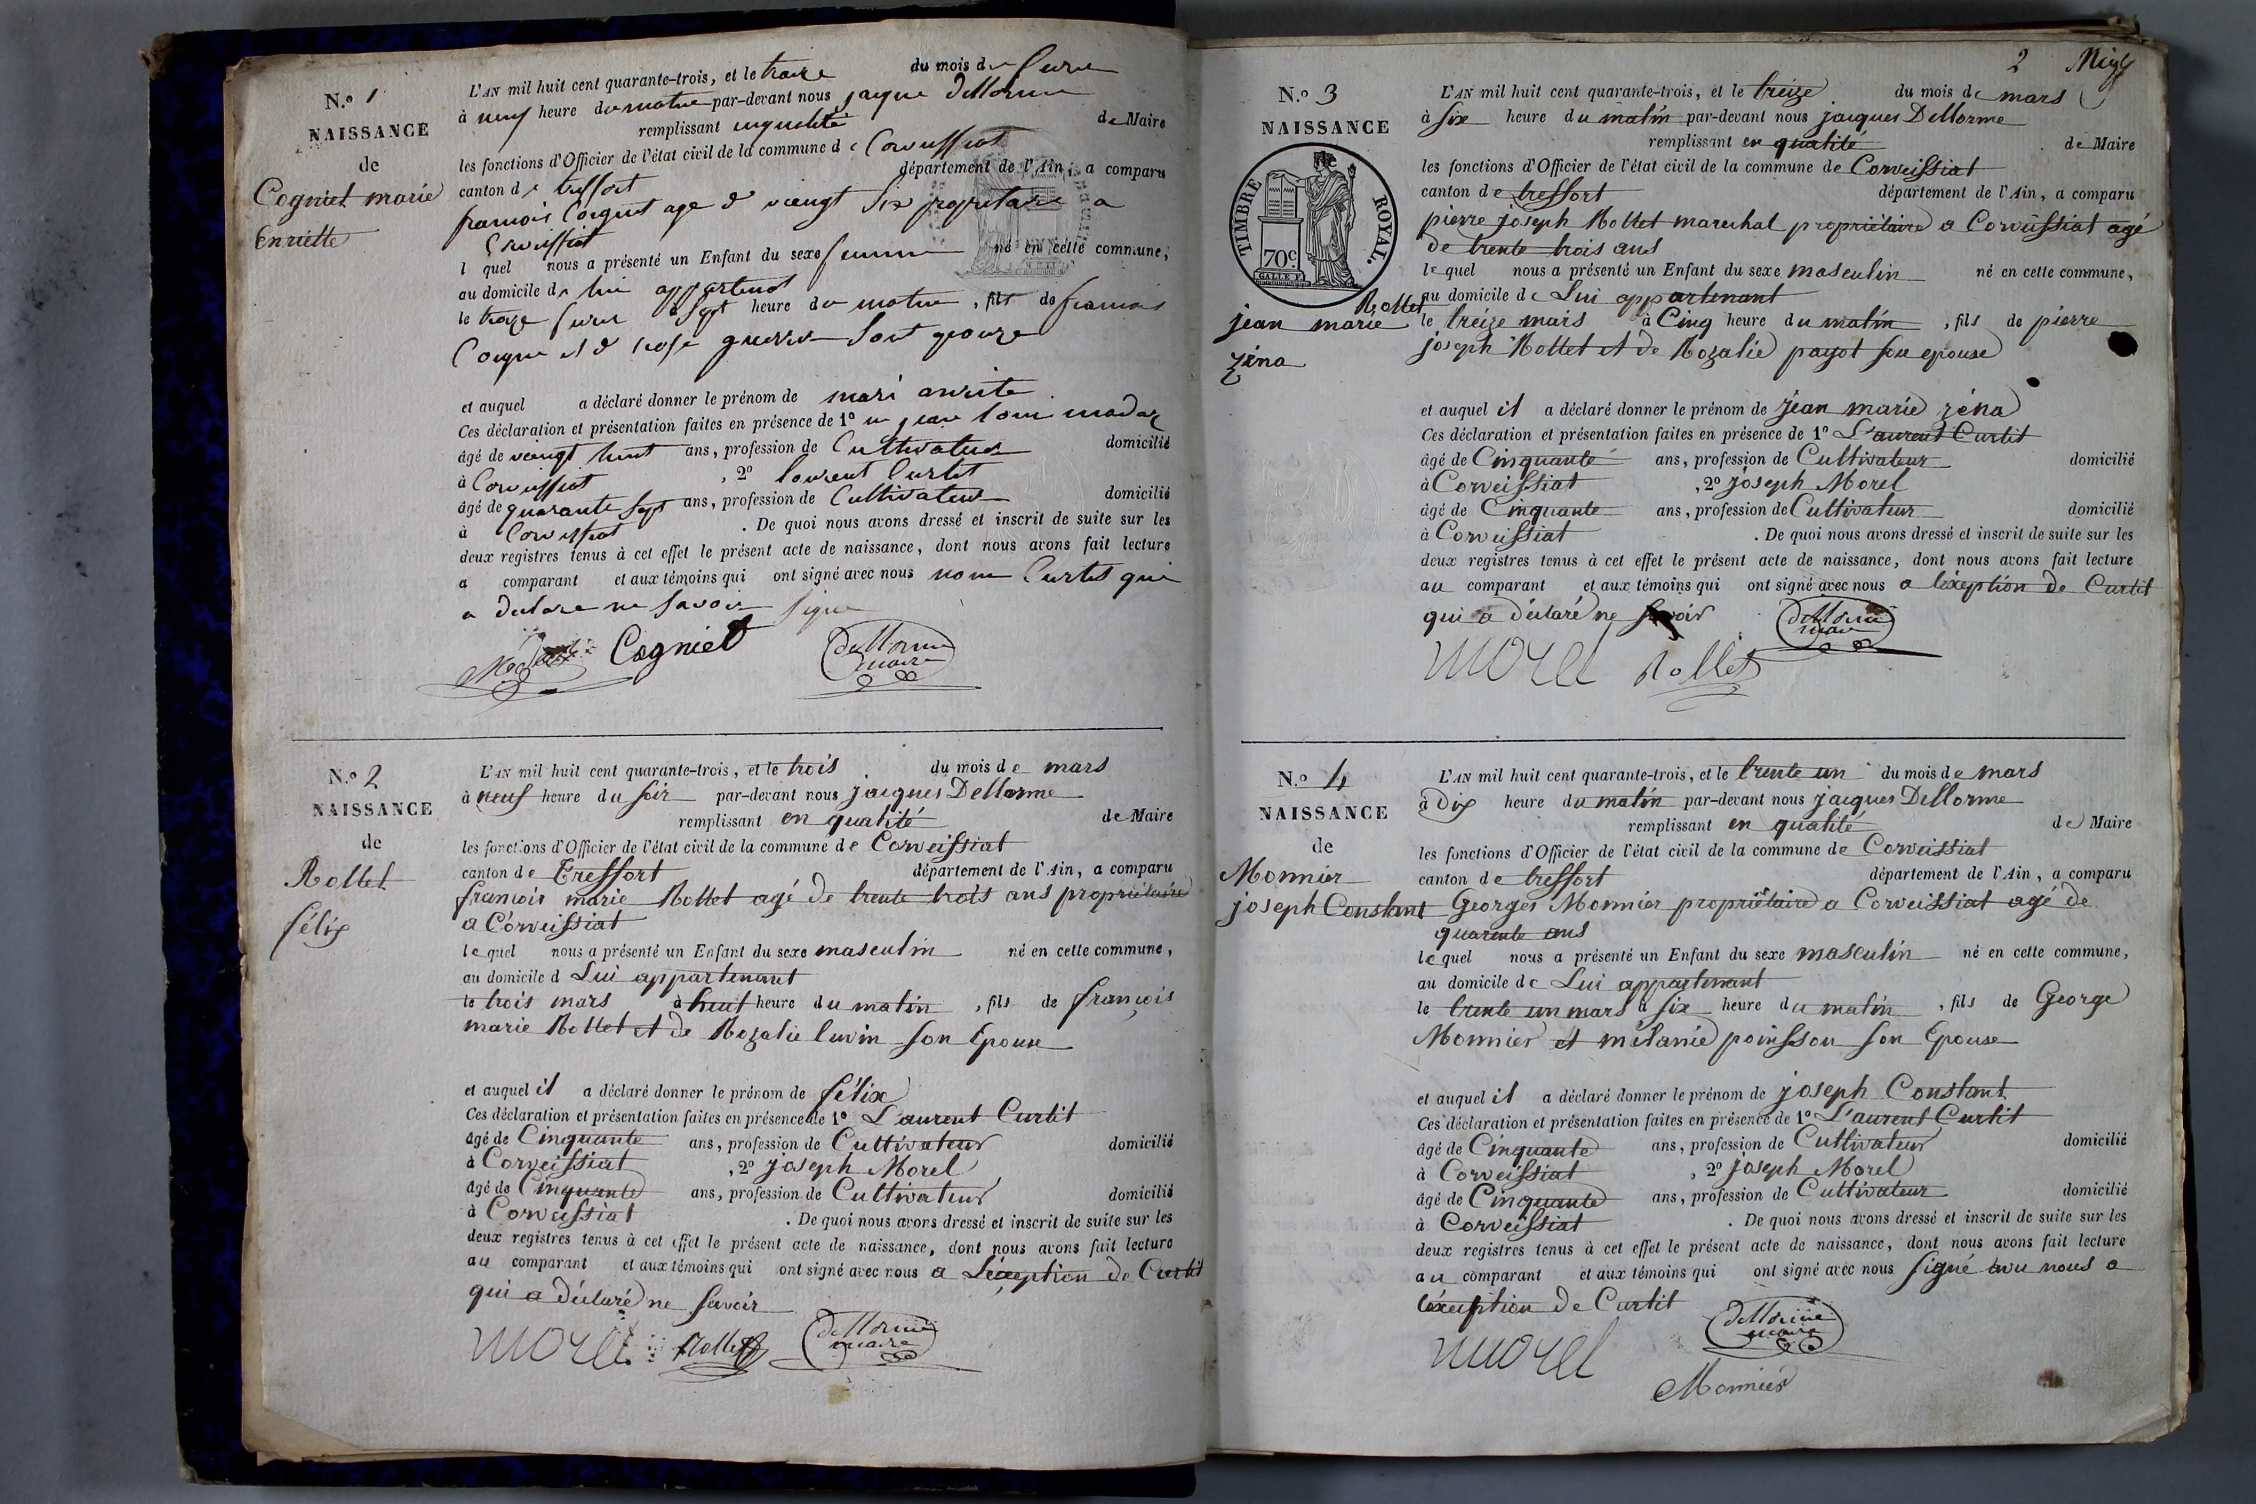 N.o 1
NAISSANCE
de
Cogniet marie
Enriette
L'AN mil huit cent quarante-trois, et le traize du mois de fevre
à neuf heure du matin par-devant nous jacque Dellorme
remplissant enqualité de Maire
les fonctions d'Officier de l'état civil de la commune de Corveissiat
canton de treffort département de l'Ain, a comparu
francois Cogniet age de vieingt six propriétaire a
Corveissiat
l quel nous a présenté un Enfant du sexe né en cette commune,
au domicile de lui appartenant
le traize à sept heure du matin, fils de francois
et de rose son
et auquel a déclaré donner le prénom de mari anriete
Ces déclaration et présentation faites en présence de 1o
âgé de vieingt huit ans, profession de Cultivateur domicilié
à Corveissiat, 2o lourent Curtit
âgé de quarante sept ans, profession de Cultivateur domicilié
à Corveissiat. De quoi nous avons dressé et inscrit de suite sur les
deux registres tenus à cet effet le présent acte de naissance, dont nous avons fait lecture
a comparant et aux témoins qui ont signé avec nous Curtit qui
a declare ne savoir signe
Cogniet
dellorme
maire
N.o 2
NAISSANCE
de
Rollet
félix
L'AN mil huit cent quarante-trois, et le trois du mois de mars
à neuf heure du soir par-devant nous jacques Dellorme
remplissant en qualité de Maire
les fonctions d'Officier de l'état civil de la commune de Corveissiat
canton de Treffort département de l'Ain, a comparu
francois marie Rollet agé de trente trois ans propriétaire
a Corveissiat
le quel nous a présenté un Enfant du sexe masculin né en cette commune,
au domicile d Lui appartenant
le trois mars à heut heure du matin, fils de françois
marie Rollet et de Rozalie luvin son Epouse
et auquel il a déclaré donner le prénom de félix
Ces déclaration et présentation faites en présence de 1o L'aurent Curtit
âgé de Cinquante ans, profession de Cultivateur domicilié
à Corveissiat, 2o joseph Morel
âgé de Cinquante ans, profession de Cultivateur domicilié
à Corveissiat. De quoi nous avons dressé et inscrit de suite sur les
deux registres tenus à cet effet le présent acte de naissance, dont nous avons fait lecture
au comparant et aux témoins qui ont signé avec nous a Léxeption de Curtit
qui a déclaré ne savoir
morel Rollet dellorme
maire
2
N.o 3
NAISSANCE
TIMBRE ROYAL.
70c.
Rollet
jean marie
zéna
L'AN mil huit cent quarante-trois, et le treize du mois de mars
à six heure du matin par-devant nous jacques Dellorme
remplissant en qualité de Maire
les fonctions d'Officier de l'état civil de la commune de Corveissiat
canton de treffort département de l'Ain, a comparu
pierre joseph Rollet marechal propriétaire a Corveissiat agé
de trente trois ans
le quel nous a présenté un Enfant du sexe masculin né en cette commune,
au domicile de Lui appartenant
le treize mars à Cinq heure du matin, fils de pierre
joseph Rollet et de Rozalie payot son epouse
et auquel il a déclaré donner le prénom de jean marie zéna
Ces déclaration et présentation faites en présence de 1o L'aurent Curtit
âgé de Cinquante ans, profession de Cultivateur domicilié
à Corveissiat, 2o joseph Morel
âgé de Cinquante ans, profession de Cultivateur domicilié
à Corveissiat. De quoi nous avons dressé et inscrit de suite sur les
deux registres tenus à cet effet le présent acte de naissance, dont nous avons fait lecture
au comparant et aux témoins qui ont signé avec nous a léxeption de Curtit
qui a déclaré ne savoir dellorme
maire
morel Rollet
N.o 4
NAISSANCE
de
Monnier
joseph Constant
L'AN mil huit cent quarante-trois, et le trente un du mois de mars
à Dix heure du matin par-devant nous jacques Dellorme
remplissant en qualité de Maire
les fonctions d'Officier de l'état civil de la commune de Corveissiat
canton de treffort département de l'Ain, a comparu
Georges Monnier propriétaire a Corveissiat agé de
quarente ans
le quel nous a présenté un Enfant du sexe masculin né en cette commune,
au domicile de Lui appartenant
le trente un mars à six heure du matin, fils de George
Monnier et mélanie poinsson son Epouse
et auquel il a déclaré donner le prénom de joseph Constant
Ces déclaration et présentation faites en présence de 1o L'aurent Curtit
âgé de Cinquante ans, profession de Cultivateur domicilié
à Corveissiat, 2o joseph Morel
âgé de Cinquante ans, profession de Cultivateur domicilié
à Corveissiat. De quoi nous avons dressé et inscrit de suite sur les
deux registres tenus à cet effet le présent acte de naissance, dont nous avons fait lecture
au comparant et aux témoins qui ont signé avec nous signé avec nous a
léxeption de Curtit dellorme
maire
morel
Monnier